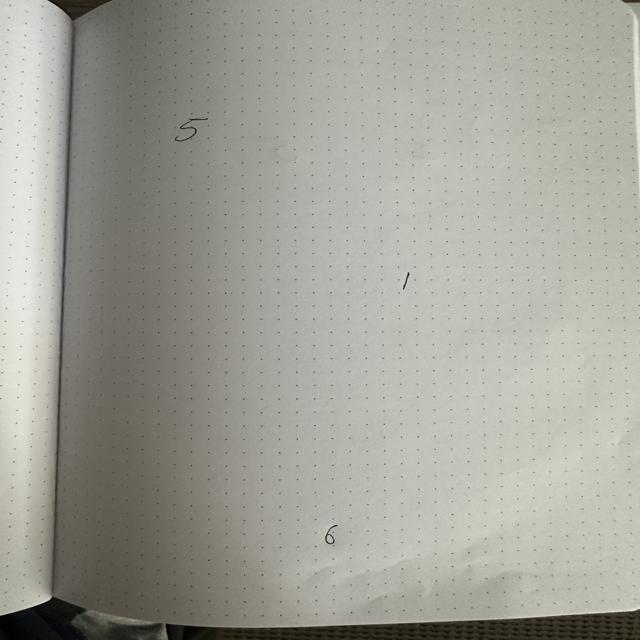 5
1
6